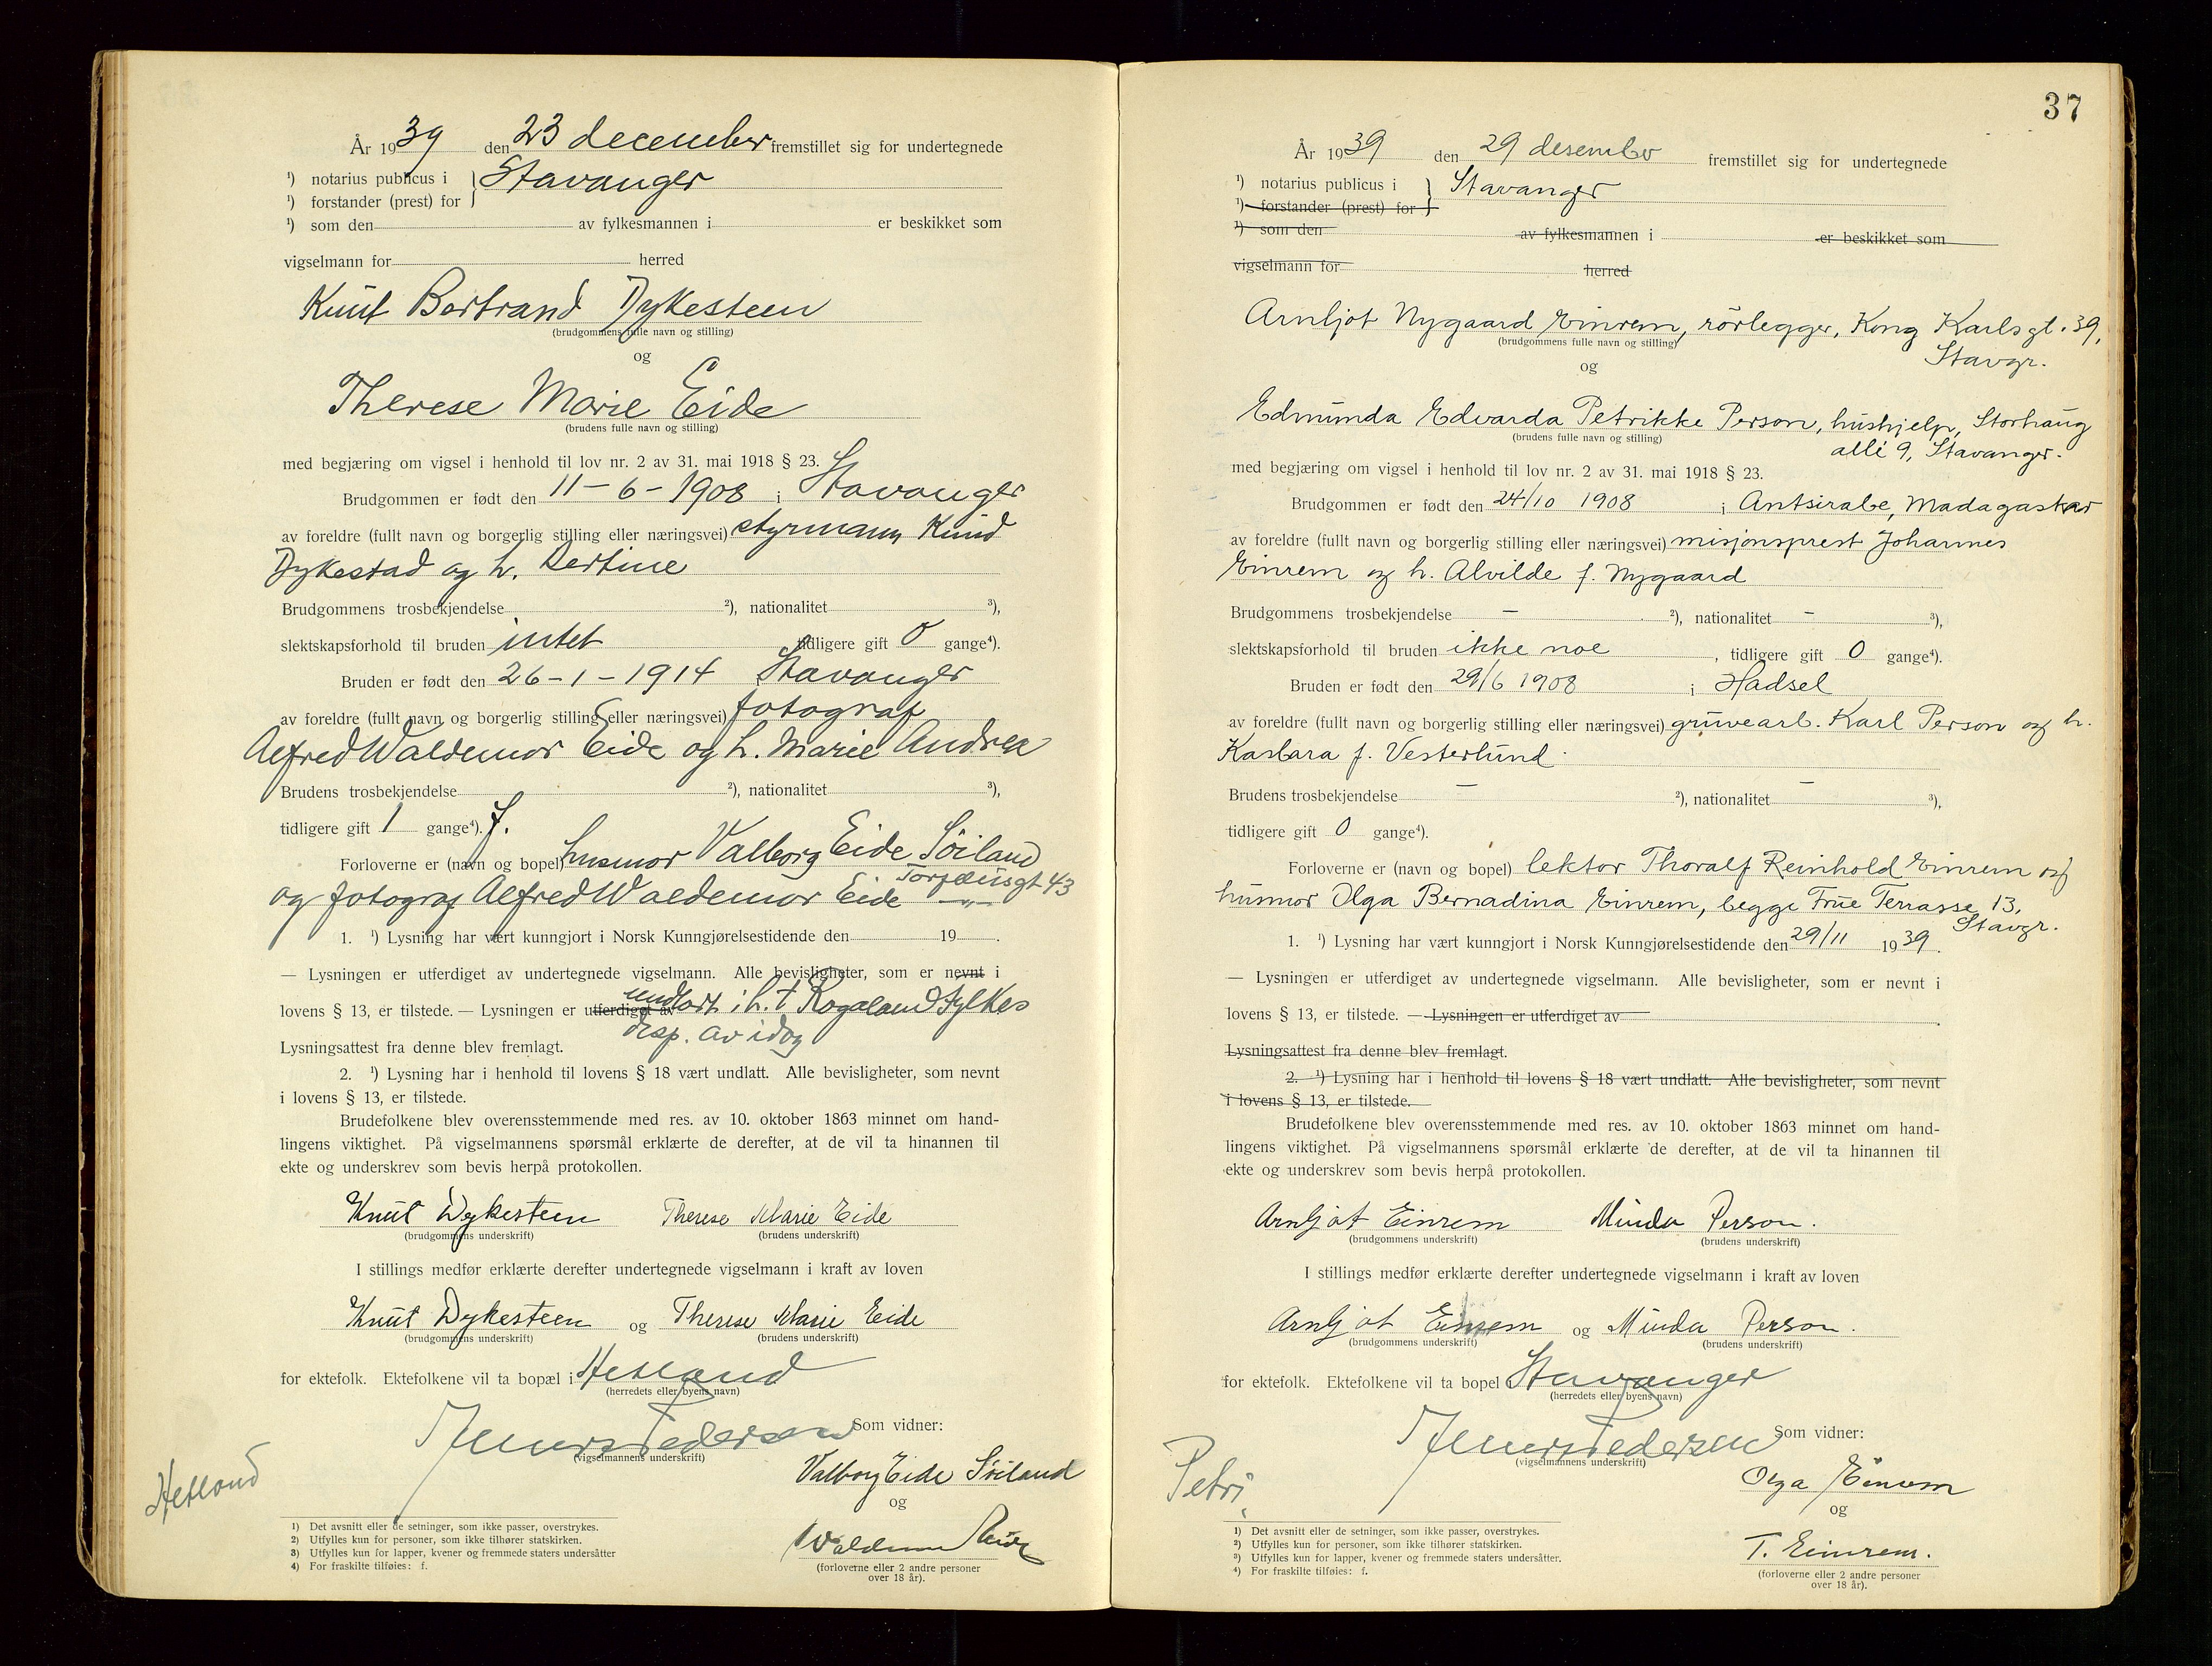 År 1939 den 23 december fremstillet sig for undertegnede
¹) notarius publicus i } Stavanger
¹) forstander (prest) for
¹) som den av fylkesmannen i er beskikket som
vigselmann for herred
Knut Bertrand Dykesteen
(brudgommens fulle navn og stilling)
og
Therese Marie Eide
(brudens fulle navn og stilling)
med begjæring om vigsel i henhold til lov nr. 2 av 31. mai 1918 § 23.
Brudgommen er født den 11-6-1908 i Stavanger
av foreldre (fullt navn og borgerlig stilling eller næringsvei) styrmann Knud
Dykestad og h. Bertine
Brudgommens trosbekjendelse ²), nationalitet ³),
slektskapsforhold til bruden intet tidligere gift 0 gange⁴).
Bruden er født den 26-1-1914 Stavanger
av foreldre (fullt navn og borgerlig stilling eller næringsvei) fotograf
Alfred Waldemar Eide og h. Marie Andrea
Brudens trosbekjendelse ²), nationalitet ³),
tidligere gift 1 gange⁴). f.
Forloverne er (navn og bopel) husmor Valborg Eide Söiland
og fotograf Alfred Waldemar Eide Torfæusgt 43 —"—
1. ¹) Lysning har vært kunngjort i Norsk Kunngjørelsestidende den 19 .
— Lysningen er utferdiget av undertegnede vigselmann. Alle bevisligheter, som er nevnt i
lovens § 13, er tilstede. — Lysningen er utferdiget av undlatt i h. t Rogaland fylkes
disp. av idag
Lysningsattest fra denne blev fremlagt.
2. ¹) Lysning har i henhold til lovens § 18 vært undlatt. Alle bevisligheter, som nevnt
i lovens § 13, er tilstede.
Brudefolkene blev overensstemmende med res. av 10. oktober 1863 minnet om hand-
lingens viktighet. På vigselmannens spørsmål erklærte de derefter, at de vil ta hinannen til
ekte og underskrev som bevis herpå protokollen.
Knut Dykesteen Therese Marie Eide
(brudgommens underskrift) (brudens underskrift)
I stillings medfør erklærte derefter undertegnede vigselmann i kraft av loven
Knut Dykesteen og Therese Marie Eide
(brudgommens underskrift) (brudens underskrift)
for ektefolk. Ektefolkene vil ta bopæl i Hetland
(herredets eller byens navn)
Pedersen Som vidner:
(vigselmannens underskrift)
Valborg Eide Söiland
Hetland
og
Waldemar Eide
(forloverne eller 2 andre personer
over 18 år).
1) Det avsnitt eller de setninger, som ikke passer, overstrykes.
2) Utfylles kun for personer, som ikke tilhører statskirken.
3) Utfylles kun for lapper, kvener og fremmede staters undersåtter
4) For fraskilte tilføies: f.
37
År 1939 den 29 desember fremstillet sig for undertegnede
¹) notarius publicus i } Stavanger
¹) forstander (prest) for
¹) som den av fylkesmannen i er beskikket som
vigselmann for herred
Arnljot Nygaard Einrem, rörlegger, Kong Karlsgt. 39,
Stavgr.
(brudgommens fulle navn og stilling)
og
Edmunda Edvarda Petrikke Person, hushjelp, Storhaug
allé 9, Stavanger.
(brudens fulle navn og stilling)
med begjæring om vigsel i henhold til lov nr. 2 av 31. mai 1918 § 23.
Brudgommen er født den 24/10 1908 i Antsirabe, Madagaskar
av foreldre (fullt navn og borgerlig stilling eller næringsvei) misjonsprest Johannes
Einrem og h. Alvilde f. Nygaard
Brudgommens trosbekjendelse — ²), nationalitet — ³),
slektskapsforhold til bruden ikke noe , tidligere gift 0 gange⁴).
Bruden er født den 29/6 1908 i Hadsel
av foreldre (fullt navn og borgerlig stilling eller næringsvei) gruvearb. Karl Person og h.
Karlara f. Vesterlund.
Brudens trosbekjendelse — ²), nationalitet — ³),
tidligere gift 0 gange⁴).
Forloverne er (navn og bopel) lektor Thoralf Reinhold Einrem og
husmor Olga Bernadina Einrem, begge Frue Terrasse 13,
Stavgr.
1. ¹) Lysning har vært kunngjort i Norsk Kunngjørelsestidende den 29/11 1939.
— Lysningen er utferdiget av undertegnede vigselmann. Alle bevisligheter, som er nevnt i
lovens § 13, er tilstede. — Lysningen er utferdiget av
Lysningsattest fra denne blev fremlagt.
2. ¹) Lysning har i henhold til lovens § 18 vært undlatt. Alle bevisligheter, som nevnt
i lovens § 13, er tilstede.
Brudefolkene blev overensstemmende med res. av 10. oktober 1863 minnet om hand-
lingens viktighet. På vigselmannens spørsmål erklærte de derefter, at de vil ta hinannen til
ekte og underskrev som bevis herpå protokollen.
Arnljot Einrem Minda Person.
(brudgommens underskrift) (brudens underskrift)
I stillings medfør erklærte derefter undertegnede vigselmann i kraft av loven
Arnljot Einrem og Minda Person.
(brudgommens underskrift) (brudens underskrift)
for ektefolk. Ektefolkene vil ta bopel Stavanger
(herredets eller byens navn)
Pedersen Som vidner:
(vigselmannens underskrift)
Petri,
Olga Einrem
og
T. Einrem.
(forloverne eller 2 andre personer
over 18 år).
1) Det avsnitt eller de setninger, som ikke passer, overstrykes.
2) Utfylles kun for personer, som ikke tilhører statskirken.
3) Utfylles kun for lapper, kvener og fremmede staters undersåtter.
4) For fraskilte tilføies: f.